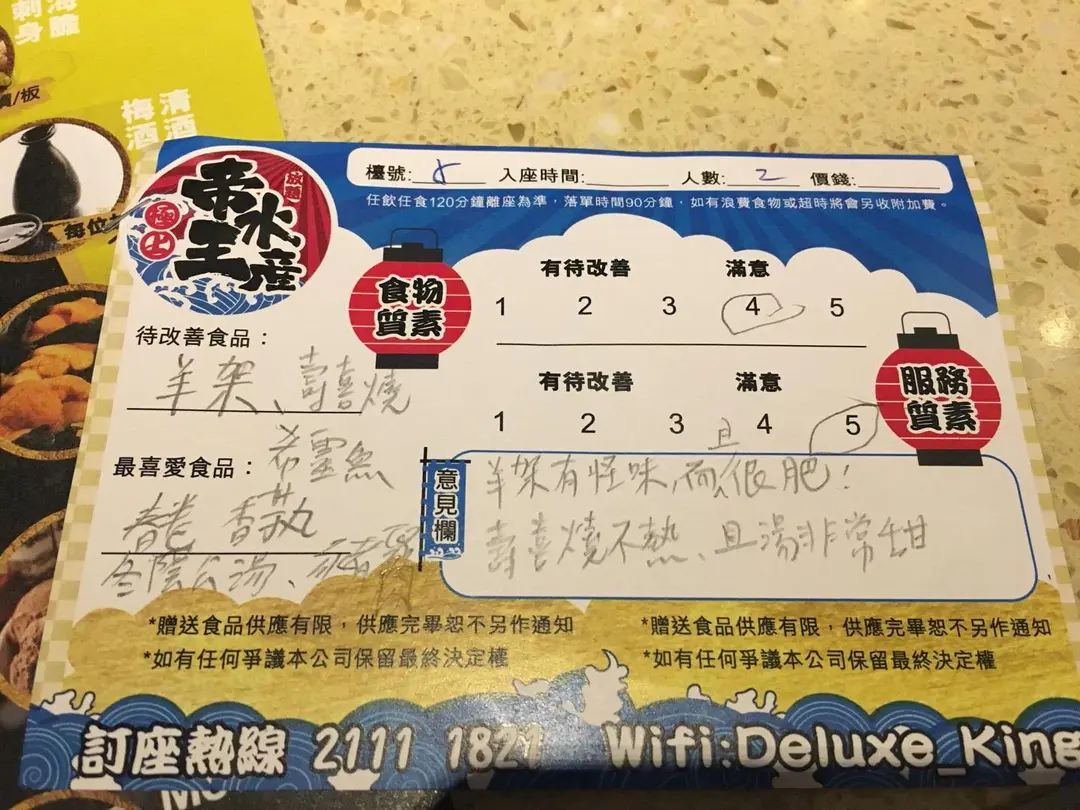 海膽
刺身
/板
清酒
梅酒
每位
放題
帝王水產
極上
檯號: 入座時間: 人數: 2 價錢:
任飲任食120分鐘離座為準，落單時間90分鐘，如有浪費食物或超時將會另收附加費。
食物質素
有待改善 滿意
1 2 3 4 5
服務質素
有待改善 滿意
1 2 3 4 5
待改善食品：
羊架、壽喜燒
最喜愛食品：
希靈魚
春卷
冬陰公湯、豬
意見欄
羊架有怪味,而且很肥!
壽喜燒不熱、且湯非常甜
*贈送食品供應有限，供應完畢恕不另作通知
*如有任何爭議本公司保留最終決定權
*贈送食品供應有限，供應完畢恕不另作通知
*如有任何爭議本公司保留最終決定權
訂座熱線 2111 1821 Wifi:Deluxe_King